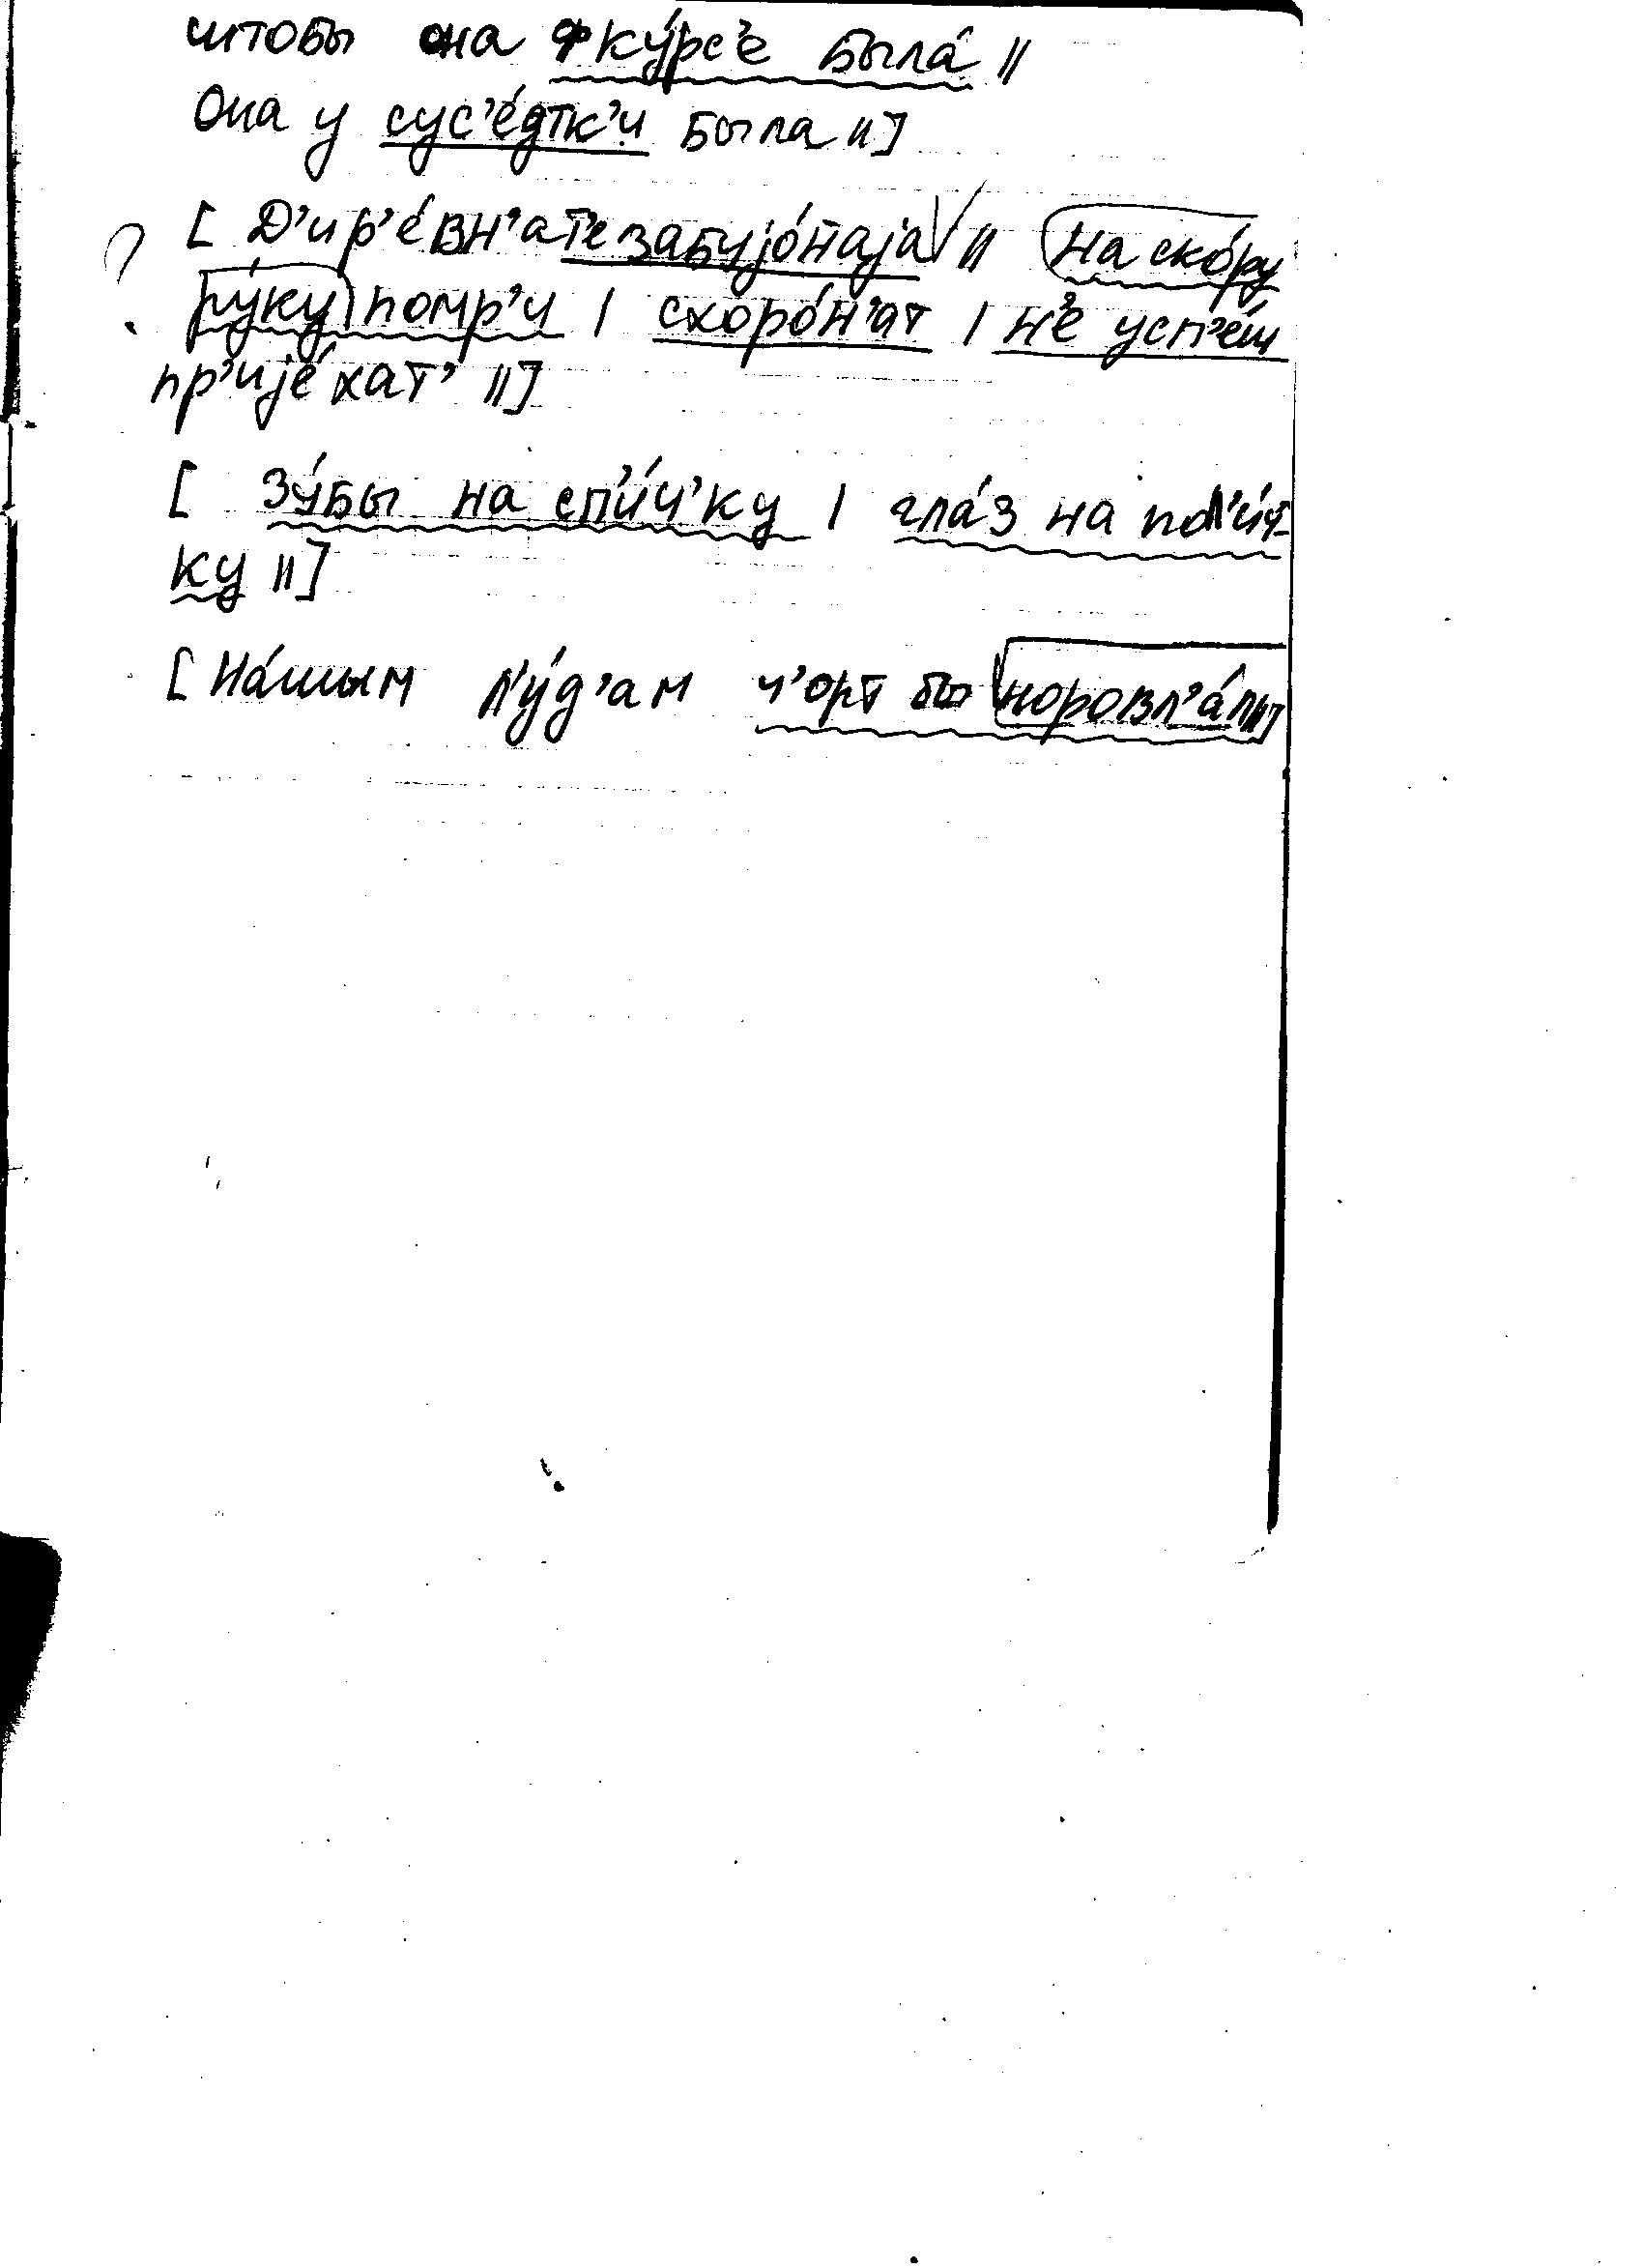 штобы она фку́рс'е была́ ||
Она у сус'е́дтк'и была ||]
[ Д'ир'е́вн'а т'е забуjо́наjа || На ско́ру
ру́ку помр'и | схоро́н'ат | н'е усп'е́ш
пр'иjе́хат' ||]
[ Зу́бы на сп'и́ч'ку | гла́з на пол'и́ч-
ку ||]
[ На́шым л'у́д'ам ч'орт бы норовл'а́л ||]